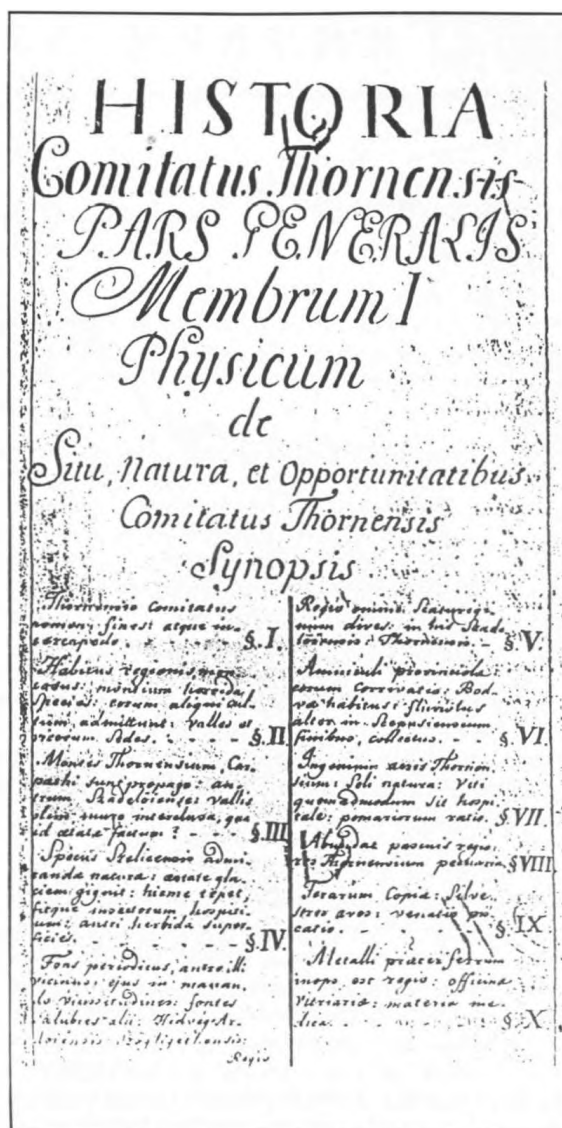 HISTORIA
Comitatus Thornensis
PARS GENERALIS
Membrum I
Physicum
de
Situ, Natura, et Opportunitatibus
Comitatus Thornensis
Synopsis
Thornensis Comitatus
nomen: fines: atque in-
tercapedo. §. I.
Habitus regionis mon-
tanus: montium horrida
species: eorum aliqui cul-
tum admittunt: valles et
vicorum sedes. §. II
Montes Thornensium, Car-
pathi sunt propago: an-
trum Szadeloiense: vallis
olim muro interclusa, qua
id aetate factum? §. III
Specus Szelicensis admi-
randa natura: aestate gla-
ciem gignit: hieme tepet,
fitque insectorum hospiti-
um: antri herbida super-
ficies. §. IV.
Fons periodicus, antro illi
vicinus: ejus in manan-
do vicissitudines: fontes
salubres alii: Hidvég-Ar-
loiensis
Regio
Regio omnis scaturigi-
num dives: in his Szade-
Thornensis. §. V.
Amniculi provinciola:
eorum corrivatio: Bod-
va habitus: fluvius
alter in
finibus, collectus. §. VI.
Ingenium aeris Thornen-
sium: Soli natura: Viti
quemadmodum sit hospi-
tale: pomariorum ratio. §. VII.
Abundat pascuis regio:
Thornensium pecuaria. §. VIII.
Ferarum Copia: Silve-
stres aves: venatio
§. IX
Metalli praeter ferrum
inops est regio: officina
vitriaria: materia me-
dica. §. X.